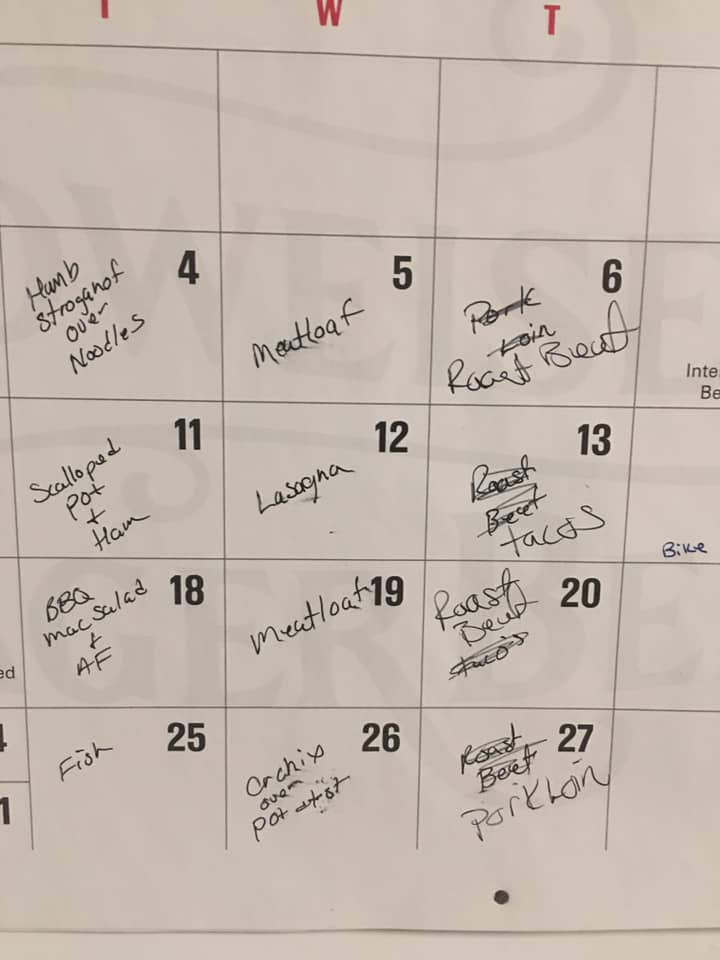 T W T
4
Humb
Stroganof
over
Noodles
5
Meatloaf
6
Pork
Loin
Roast Beef
Inte
Be
11
Scalloped
Pot
+
Ham
12
Lasagna
13
Roast
Beef
tacos
Bike
18
BBQ
mac salad
+
AF
19
Meatloaf
20
Roast
Beef
tacos
ed
25
Fish
26
Cr chix
over
pot
27
Roast
Beef
Pork Loin
1